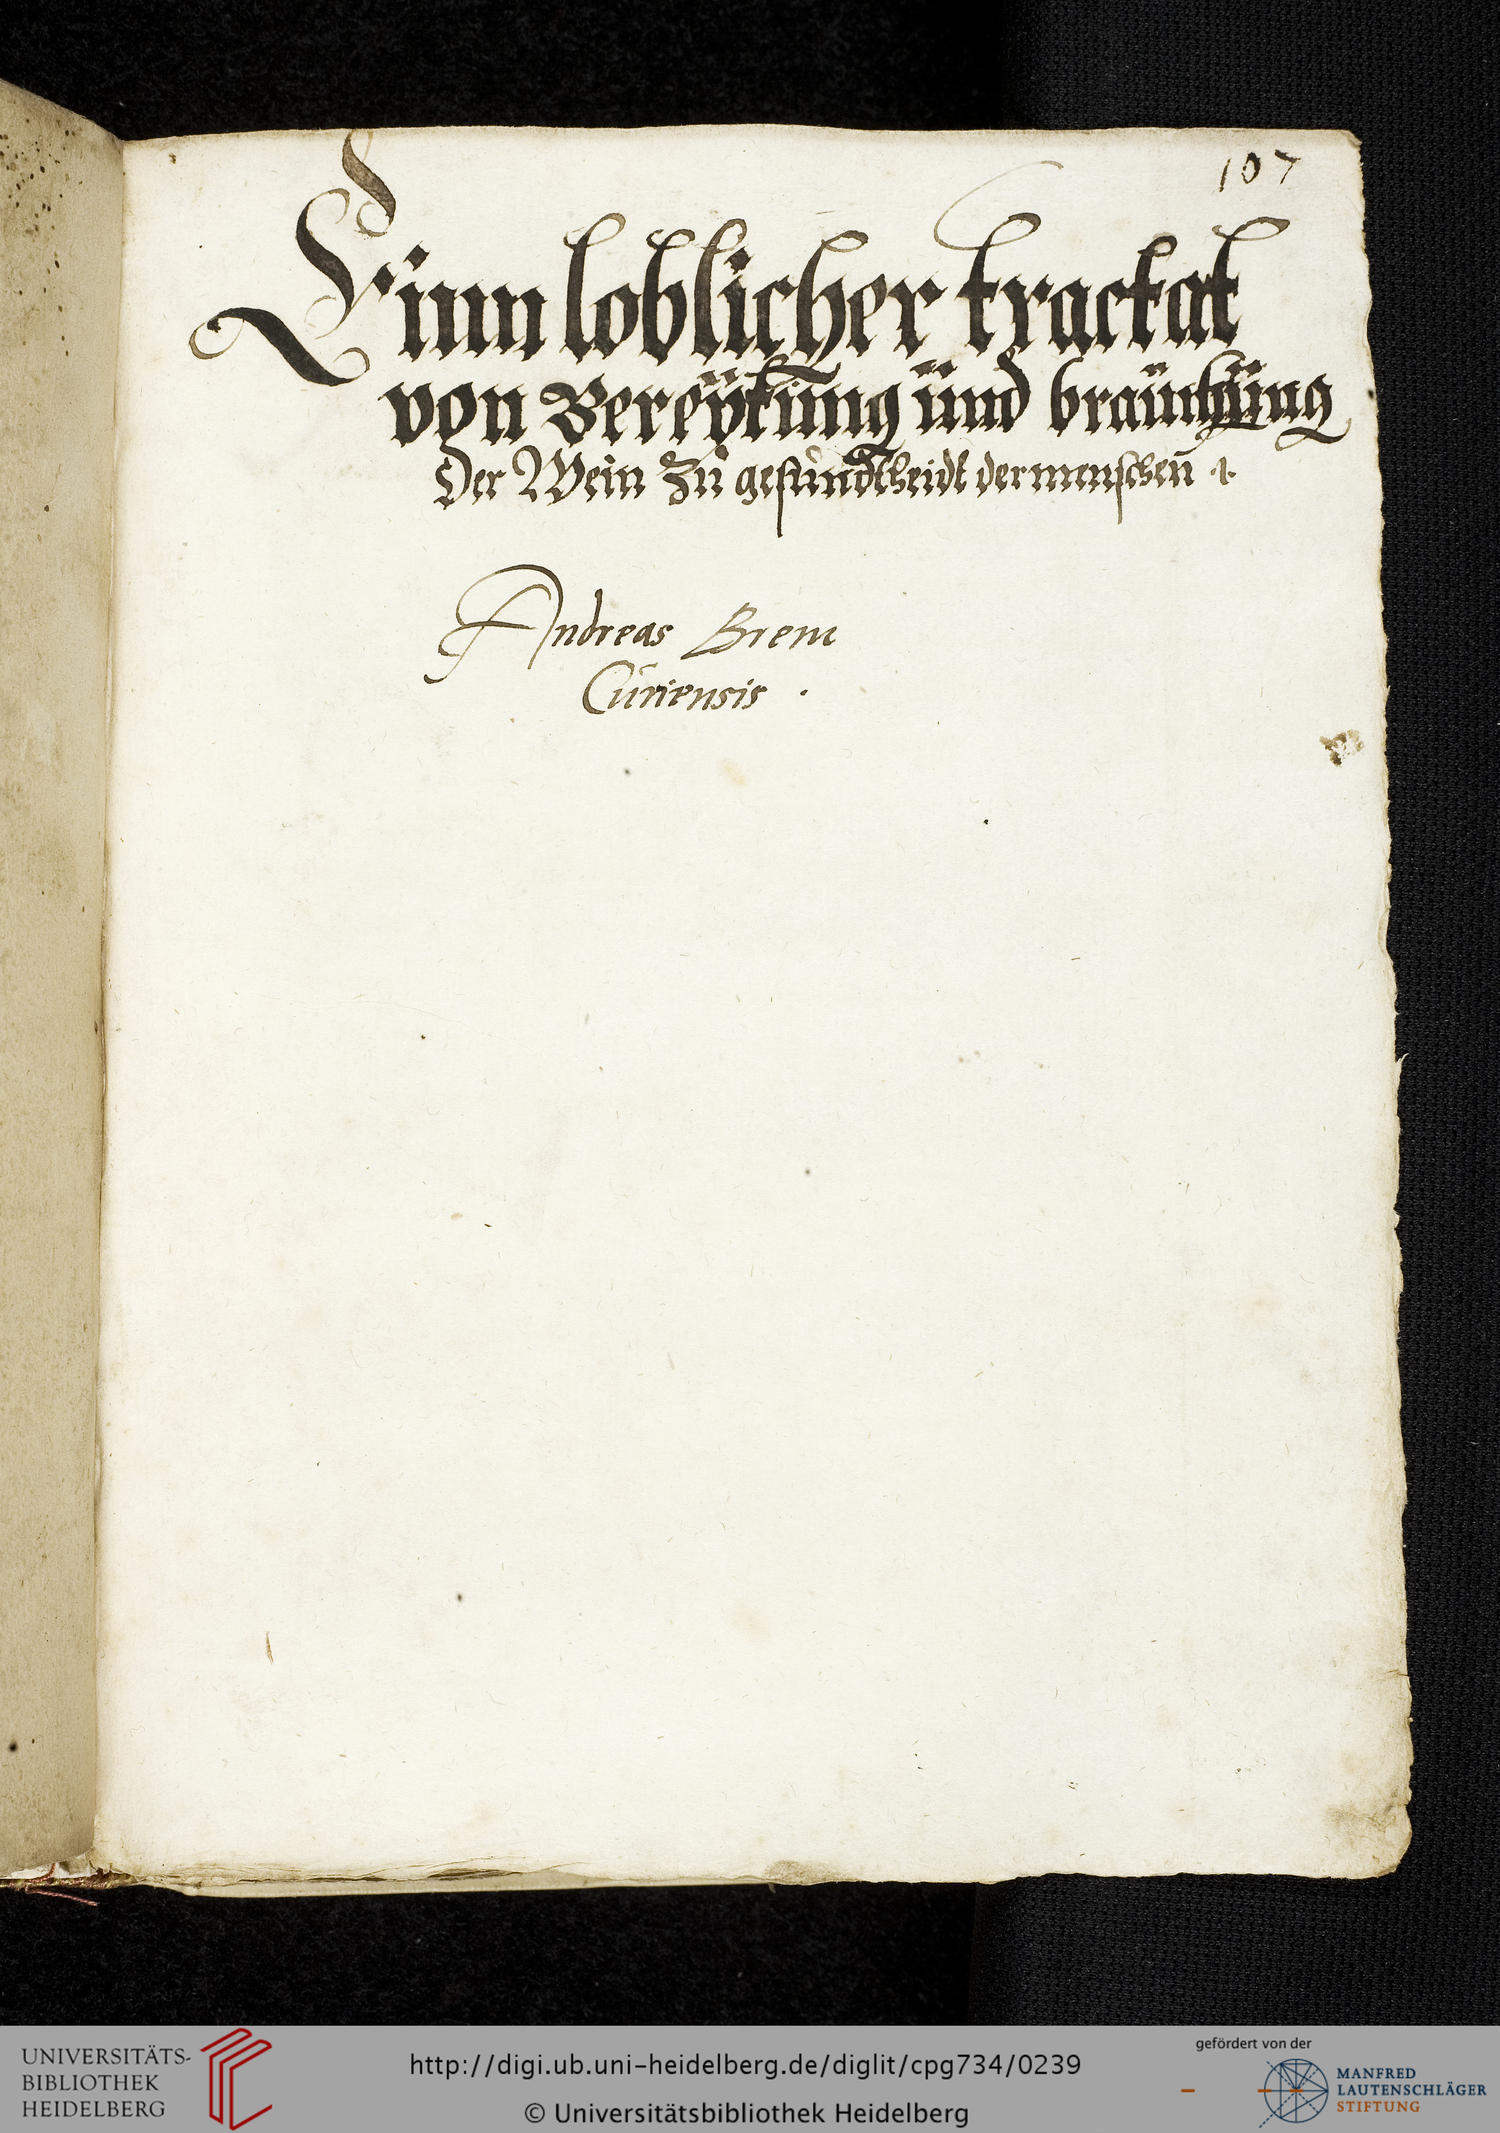 107
Einn loblicher tractat
von Bereÿtŭng ünd braüchüng
Der Wein zů gesŭndtheidt der menschen
Andreas Brem
Cŭriensis .
UNIVERSITÄTS-
BIBLIOTHEK
HEIDELBERG
http://digi.ub.uni-heidelberg.de/diglit/cpg734/0239
© Universitätsbibliothek Heidelberg
gefördert von der
MANFRED
LAUTENSCHLÄGER
STIFTUNG